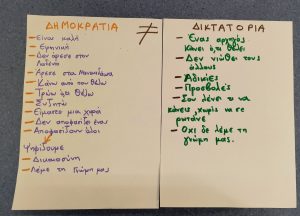 ΔΗΜΟΚΡΑΤΙΑ
- Είναι καλή
- Ειρηνική
- Δεν άρεσε στον
- Άρεσε στα
- Κάνω αυτό που θέλω
- Τρώω ό,τι θέλω
- Συζητώ
- Είμαστε μια χαρά
- Δεν αποφασίζει ένας
- Αποφασίζουν όλοι
Ψηφίζουμε
- Δικαιοσύνη
- Λέμε τη γνώμη μας
≠
ΔΙΚΤΑΤΟΡΙΑ
- Ένας αρχηγός
κάνει ό,τι θέλει
- Δεν νιώθει τους
άλλους
- Αδικίες
- Προσβολές
- Σου λένε τι να
κάνεις, χωρίς να σε
ρωτάνε
- Όχι δε λέμε τη
γνώμη μας.